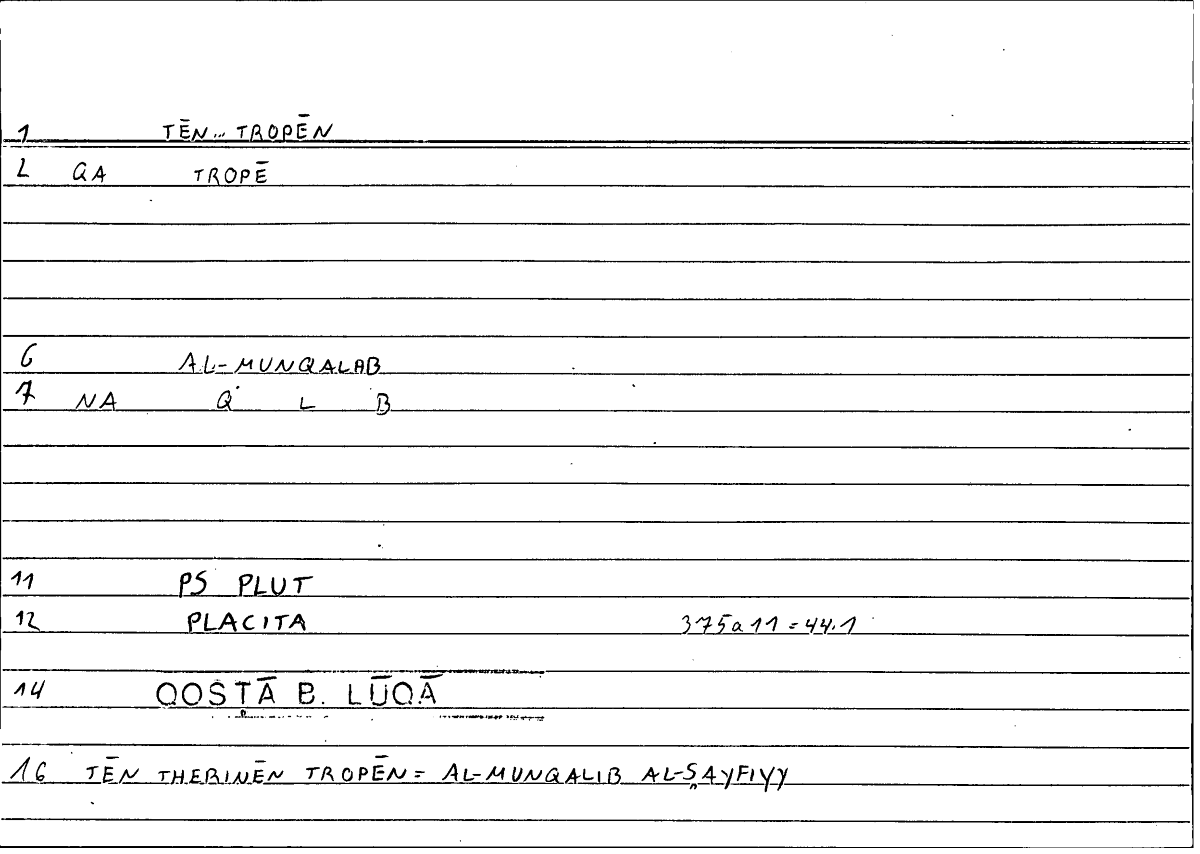 1 TĒN... TROPĒN
2 QA TROPĒ
6 AL-MUNQALAB
7 NA Q L B
11 PS PLUT
12 PLACITA 375a11=44.1
14 QOSṬĀ B. LŪQĀ
16 TĒN THERINĒN TROPĒN= AL-MUNQALIB AL-ṢAYFIYY